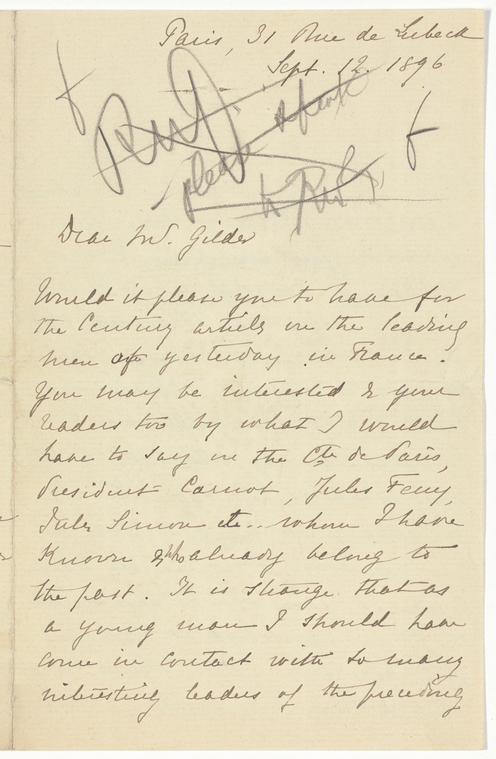 Paris, 31 Rue de Lubeck
Sept. 12. 1896
please speak
to RUJ
Dear Mr. Gilder
Would it please you to have for
the Century articles on the leading
men of yesterday in France.
You may be interested & your
readers too by what I would
have to say on the Cte de Paris,
President Carnot, Jules Ferry,
Jules Simon etc.. whom I have
known & who already belong to
the past. It is strange that as
a young man I should have
come in contact with so many
interesting leaders of the preceding